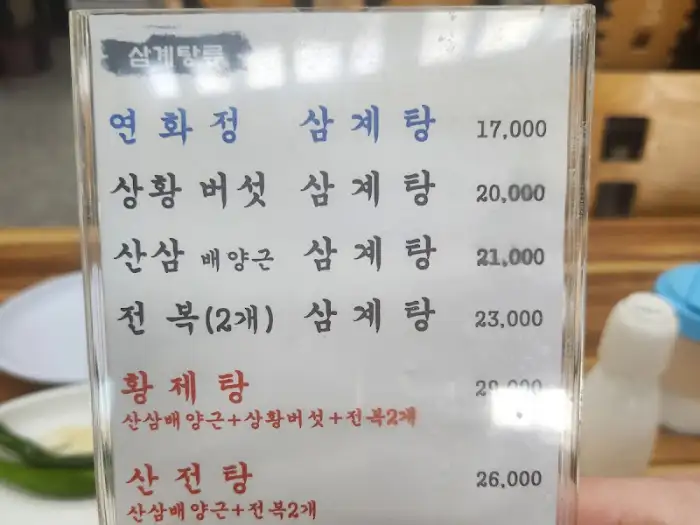 삼계탕류
연화정 삼계탕 17,000
상황버섯 삼계탕 20,000
산삼 배양근 삼계탕 21,000
전복(2개) 삼계탕 23,000
황제탕
산삼배양근+상황버섯+전복2개
산전탕 26,000
산삼배양근+전복2개